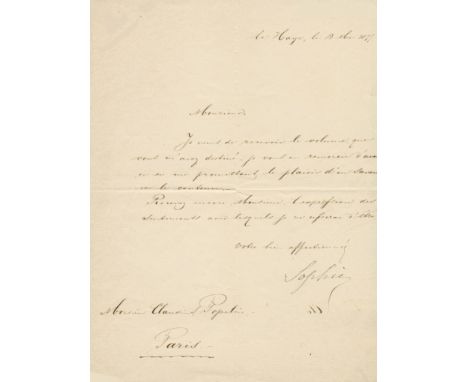 La Haye, le 18
Monsieur
Je viens de recevoir le volume que
vous m'avez destiné. je vous en remercie
en me promettant le plaisir d'en
le contenu.
Recevez encore Monsieur l'expression des
sentiments avec lesquels je
votre bien affectionnée
Sophie
Monsieur Claudius Popelin.
Paris